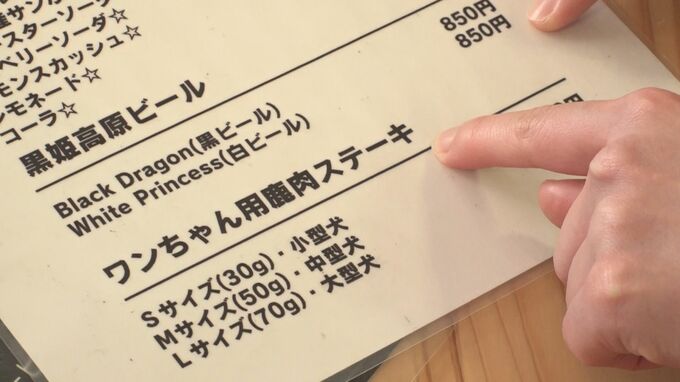 スターソーダ
ベリーソーダ☆
モンスカッシュ☆
モネード☆
コーラ☆
850円
850円
黒姫高原ビール
Black Dragon(黒ビール)
White Princess(白ビール)
円
ワンちゃん用鹿肉ステーキ
Sサイズ(30g)・小型犬
Mサイズ(50g)・中型犬
Lサイズ(70g)・大型犬